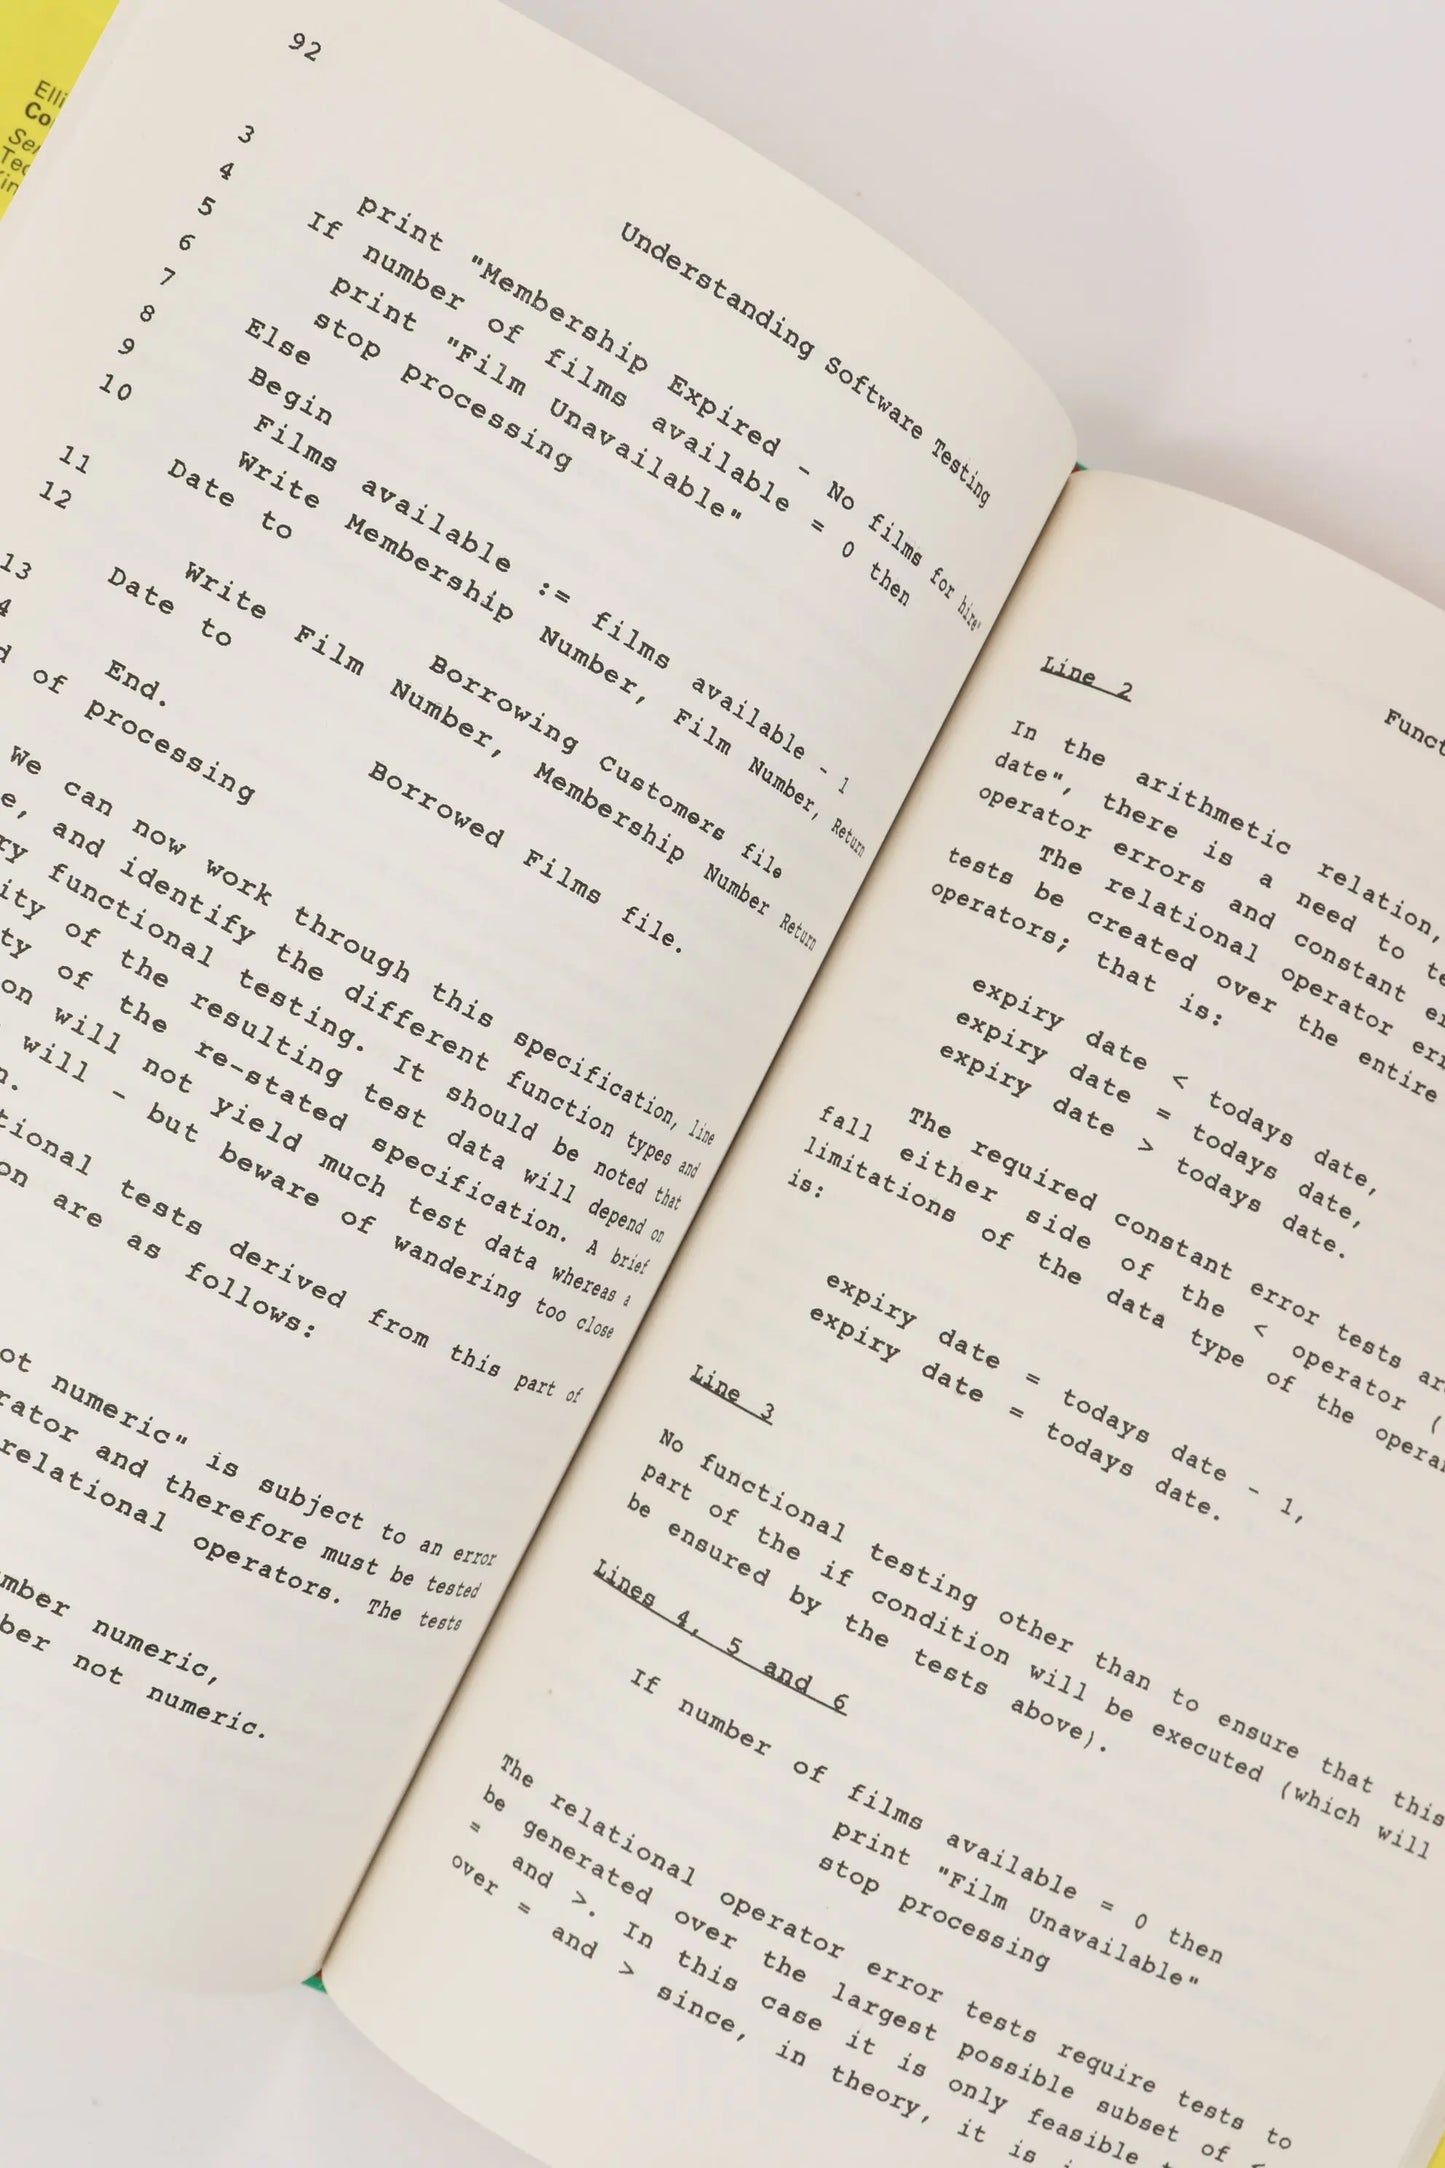 Co
92
Understanding Software Testing
3 print "Membership Expired - No films for hire"
4 If number of films available = 0 then
5 print "Film Unavailable"
6 stop processing
7 Else
8 Begin
9 Films available := films available - 1
10 Write Membership Number, Film Number, Return
Date to Borrowing Customers file
11 Write Film Number, Membership Number Return
12 Date to Borrowed Films file.
13 End.
of processing
We can now work through this specification, line
and identify the different function types and
functional testing. It should be noted that
of the resulting test data will depend on
of the re-stated specification. A brief
will not yield much test data whereas a
will - but beware of wandering too close
tests derived from this part of
are as follows:
numeric" is subject to an error
and therefore must be tested
relational operators. The tests
numeric,
not numeric.
Line 2
In the arithmetic relation,
date", there is a need to
operator errors and constant
The relational operator
tests be created over the entire
operators; that is:
expiry date < todays date,
expiry date = todays date,
expiry date > todays date.
The required constant error tests
fall either side of the < operator (
limitations of the data type of the
is:
expiry date = todays date - 1,
expiry date = todays date.
Line 3
No functional testing other than to ensure that this
part of the if condition will be executed (which will
be ensured by the tests above).
Lines 4, 5 and 6
If number of films available = 0 then
print "Film Unavailable"
stop processing
The relational operator error tests require tests to
be generated over the largest possible subset of
= and >. In this case it is only feasible
over = and > since, in theory, it is